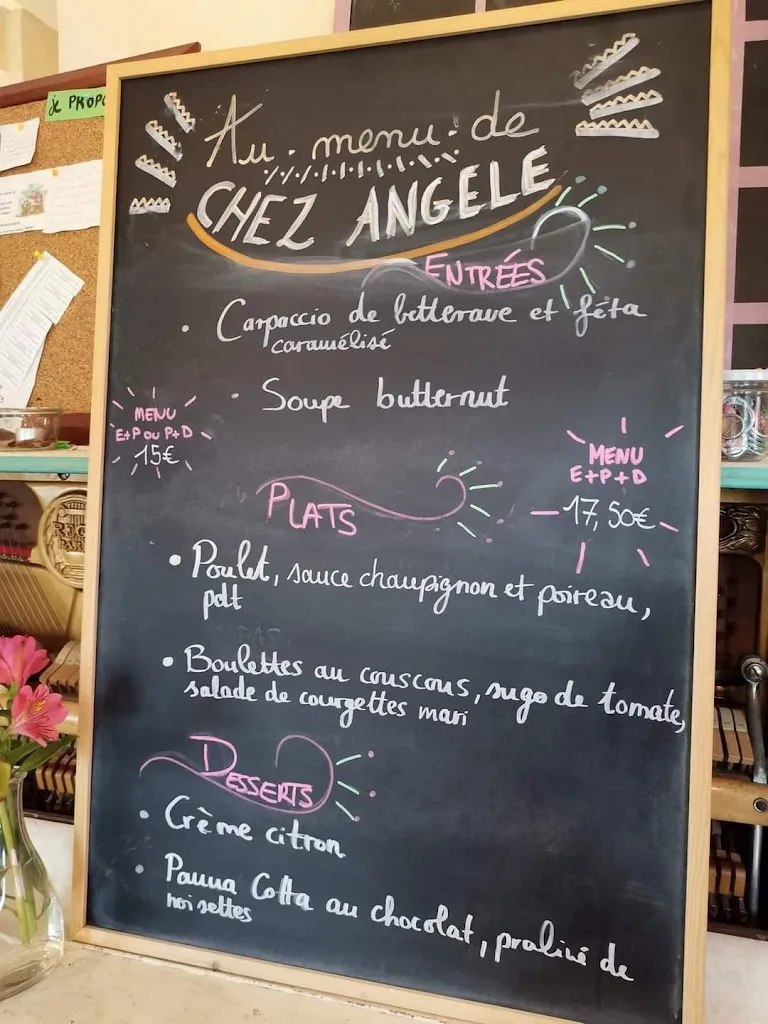 je PROPO
Au menu de
CHEZ ANGELE
ENTRÉES
• Carpaccio de betterave et féta
caramélisé
• Soupe butternut
MENU
E+P ou P+D
15€
MENU
E+P+D
17,50€
PLATS
• Poulet, sauce champignon et poireau,
pdt
• Boulettes au couscous, sugo de tomate,
salade de courgettes mari
DESSERTS
• Crème citron
• Panna Cotta au chocolat, praliné de
noisettes